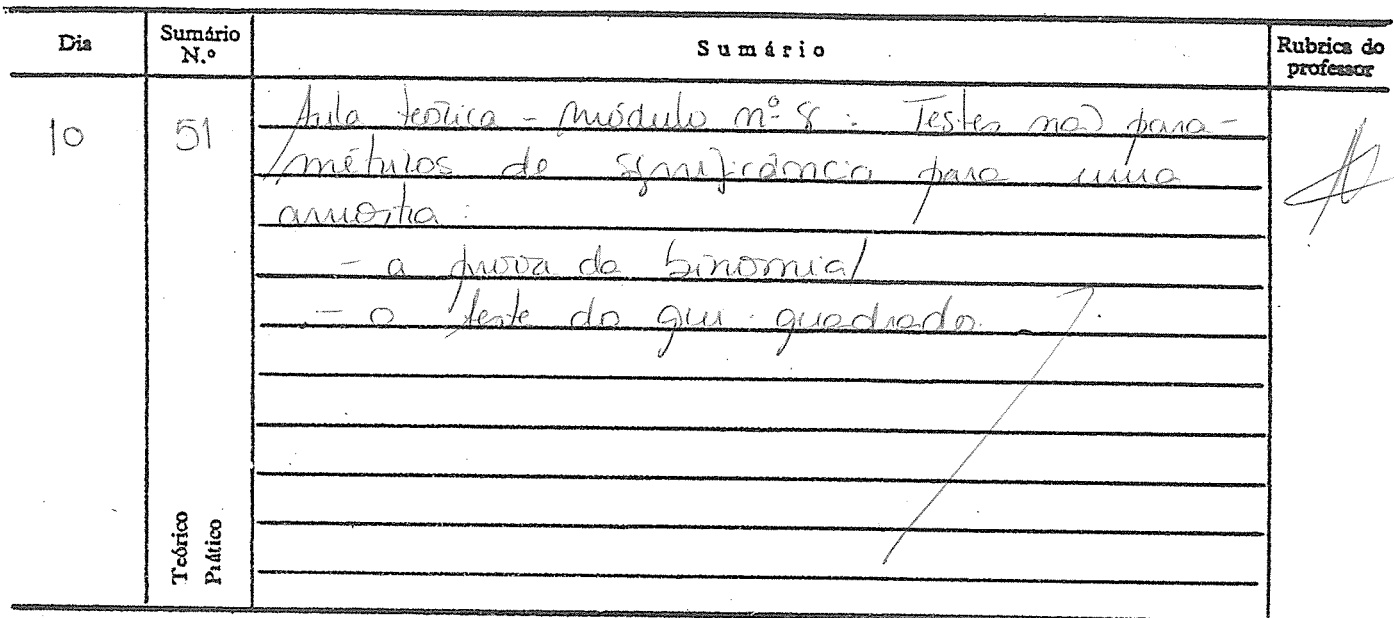 Dia
Sumário N.º
Sumário
Rubrica do professor
10
51
Aula teórica - Módulo nº 8 : Testes não para-
métricos de significância para uma
amostra :
- a prova da binomial
- o teste do qui-quadrado.
Teórico
Prático